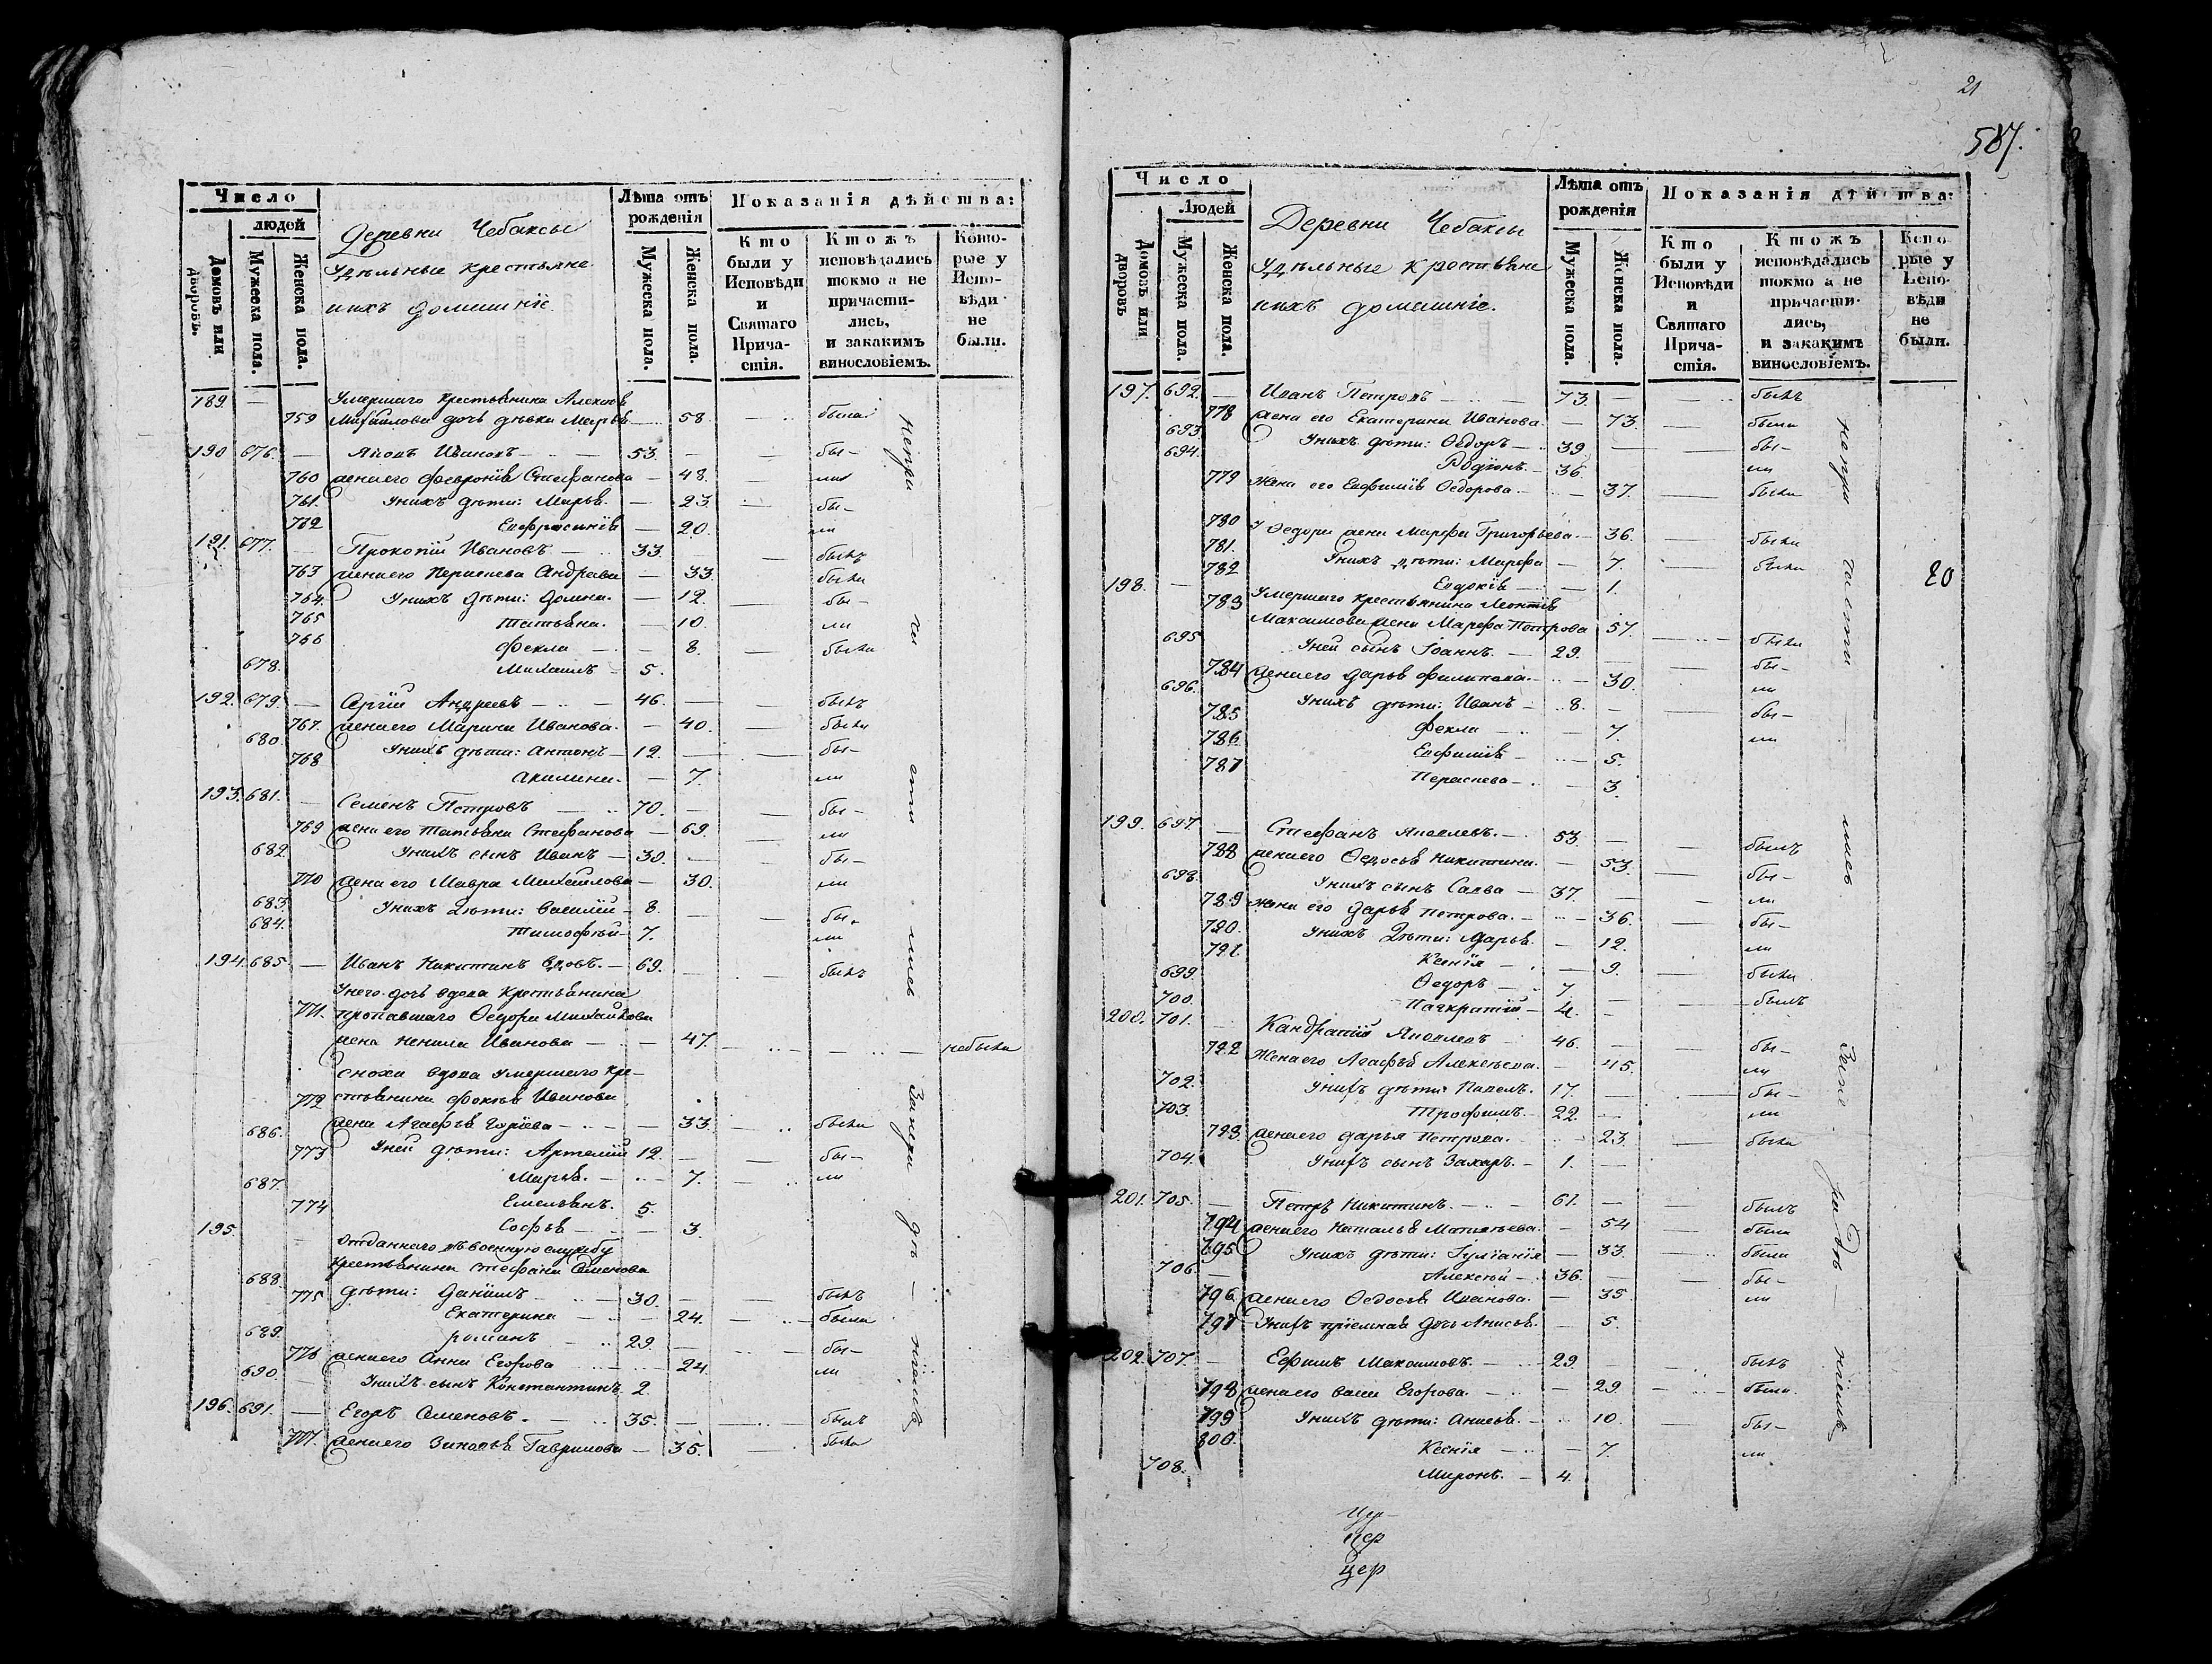 Число
людей
Домовъ или дворовъ.
Мужеска пола.
Женска пола.
Деревни Чебаксы
Удѣльные крестьяне
ихъ домашніе.
Лѣта отъ рожденія
Мужеска пола.
Женска пола.
Показанія дѣйства:
Кто были у Исповѣди и Святаго Причастія.
Ктожъ исповѣдались токмо а не причастились, и закакимъ винословіемъ.
Которые у Исповѣди не были.
189. — Умершаго крестьянина Алексѣя
759 Михайлова дочь дѣвка Марья — 58. была
190 676. — Яковъ Ивановъ — 53. — бы–
760 жена его Февронія Стефанова — 48. ла
761. Унихъ дѣти: Марья — 23. бы–
762 Евфросинія — 20. ли
191. 677. — Прокопій Ивановъ — 33. — былъ
763 жена его Параскева Андреева — 33. была
764. Унихъ дѣти: Домна. — 12. бы–
765 Татьяна. — 10. ли
766 Фекла — 8. была
678. Михаилъ — 5.
192. 679. — Сергій Андреевъ — 46. — былъ
767. жена его Марина Иванова. — 40. была
680. Унихъ дѣти: Антонъ — 12. бы–
768 Акилина. — 7. ли
193. 681. — Семенъ Петровъ — 70. — бы–
769 жена его Татьяна Стефанова — 69. ли
682. Унихъ сынъ Иванъ — 30. — бы–
770 жена его Мавра Михайлова — 30. ли
683. Унихъ дѣти: Василій — 8. бы–
684. Тимофѣй — 7. ли
194. 685. — Иванъ Никитинъ вдовъ. — 69. — былъ
Унего дочь вдова крестьянина
771. пропавшаго Ѳедора Михайлова
жена Ненила Иванова — 47. — небыла
Сноха вдова умершаго кре–
772 стьянина Фоки Иванова
жена Агафья Гуріева — 33. была
686. Уней дѣти: Артемій 12. — бы–
773 Марья. — 7. ли
687. Емельянъ. 5.
774 Софья — 3.
195. — Отданнаго въ военную службу
крестьянина Стефана Семенова
688. дѣти: Даніилъ — 30. — былъ
775 Екатерина — 24. — была
689. Романъ — 29. — бы–
776 жена его Анна Егорова — 24. ли
690. Унихъ сынъ Константинъ 2.
196. 691. — Егоръ Семеновъ. — 35. — былъ
777. жена его Зиновья Гаврилова — 35. была
непри чи сти лись Занера дѣ — ніемъ
21
587.
Число
Людей
Домовъ или дворовъ
Мужеска пола.
Женска пола.
Деревни Чебаксы
Удѣльные крестьяне
ихъ домашніе.
Лѣта отъ рожденія
Мужеска пола.
Женска пола.
Показанія дѣйства:
Кто были у Исповѣди и Святаго Причастія.
Ктожъ исповѣдались токмо а не причастились, и закакимъ винословіемъ.
Которые у Исповѣди не были.
197. 692. — Иванъ Петровъ — 73. — былъ
778 жена его Екатерина Иванова. — 73. — была
693. Унихъ дѣти: Ѳедоръ — 39. — бы–
694. Родіонъ — 36. ли
779 Жена его Евфимія Ѳедорова. — 37. — была
780 У Ѳедора жена Марфа Григорьева. — 36. — была
781. Унихъ дѣти: Марфа — 7. — была
782 Евдокія — 1.
20
198. — Умершаго крестьянина Леонтія
783 Максимова жена Марфа Петрова 57. — была
695. Уней сынъ Іоаннъ. — 29. — бы–
784 жена его Дарья Филипова. — 30. — ли
696. Унихъ дѣти: Иванъ — 8. — бы–
785 Фекла — 7. ли
786 Евфимія — 5.
787 Параскева — 3.
199. 697. — Стефанъ Яковлевъ. — 53. — былъ
788 жена его Ѳедосья Никитина. — 53. — бы–
698. Унихъ сынъ Савва — 37. — ли
789 жена его Дарья Петрова. — 36. бы–
790. Унихъ дѣти: Дарья. — 12. ли
791 Ксенія — 9. была
699. Ѳедоръ — 7 — былъ
700. Панкратій — 4. –
200. 701. — Кандратій Яковлевъ — 46. — бы–
792 Жена его Агафья Алексѣева. — 45. ли
702. Унихъ дѣти Павелъ. — 17. — бы–
703. Трофимъ. — 22. — ли
793. жена его Дарья Петрова. — 23. — была
704. Унихъ сынъ Захаръ. — 1. —
201. 705. — Петръ Никитинъ. — 61. — былъ
794 жена его Наталья Матвѣева. — 54 была
795 Унихъ дѣти: Іуліанія — 33. была
706. — Алексѣй — 36. — бы–
796. жена его Ѳедосья Иванова. — 35 ли
797 Унихъ пріемная дочь Анисья. — 5.
202. 707. — Ефимъ Максимовъ. — 29. — былъ
798 жена его Васса Егорова. — 29. — была.
799 Унихъ дѣти: Анисья. — 10. — бы–
800. Ксенія — 7. ли
708. Миронъ. — 4.
непри части лись Зане ра дѣ — ніемъ
Цер
цер
цер